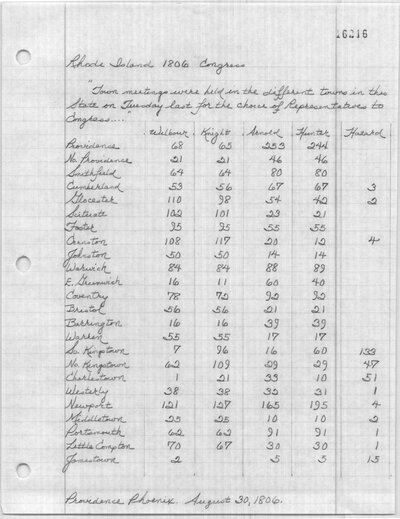 16216
Rhode Island 1806 Congress
"Town meetings were held in the different towns in this
State on Tuesday last for the choice of Representatives to
Congress...."
Wilbour Knight Arnold Hunter Hazard
Providence 68 65 253 244
No. Providence 21 21 46 46
Smithfield 64 64 80 80
Cumberland 53 56 67 67 3
Glocester 110 98 54 42 2
Scituate 102 101 23 21
Foster 95 95 55 55
Cranston 108 117 20 12 4
Johnston 50 50 14 14
Warwick 84 84 88 89
E. Greenwich 16 11 60 40
Coventry 78 72 92 92
Bristol 56 56 21 21
Barrington 16 16 39 39
Warren 55 55 17 17
So. Kingstown 7 96 16 60 133
No. Kingstown 62 109 29 29 47
Charlestown 1 21 33 10 51
Westerly 38 38 32 31 1
Newport 121 127 165 195 4
Middletown 25 25 10 10 2
Portsmouth 62 62 91 91 1
Little Compton 70 67 30 30 1
Jamestown 2 5 5 15
Providence Phoenix. August 30, 1806.